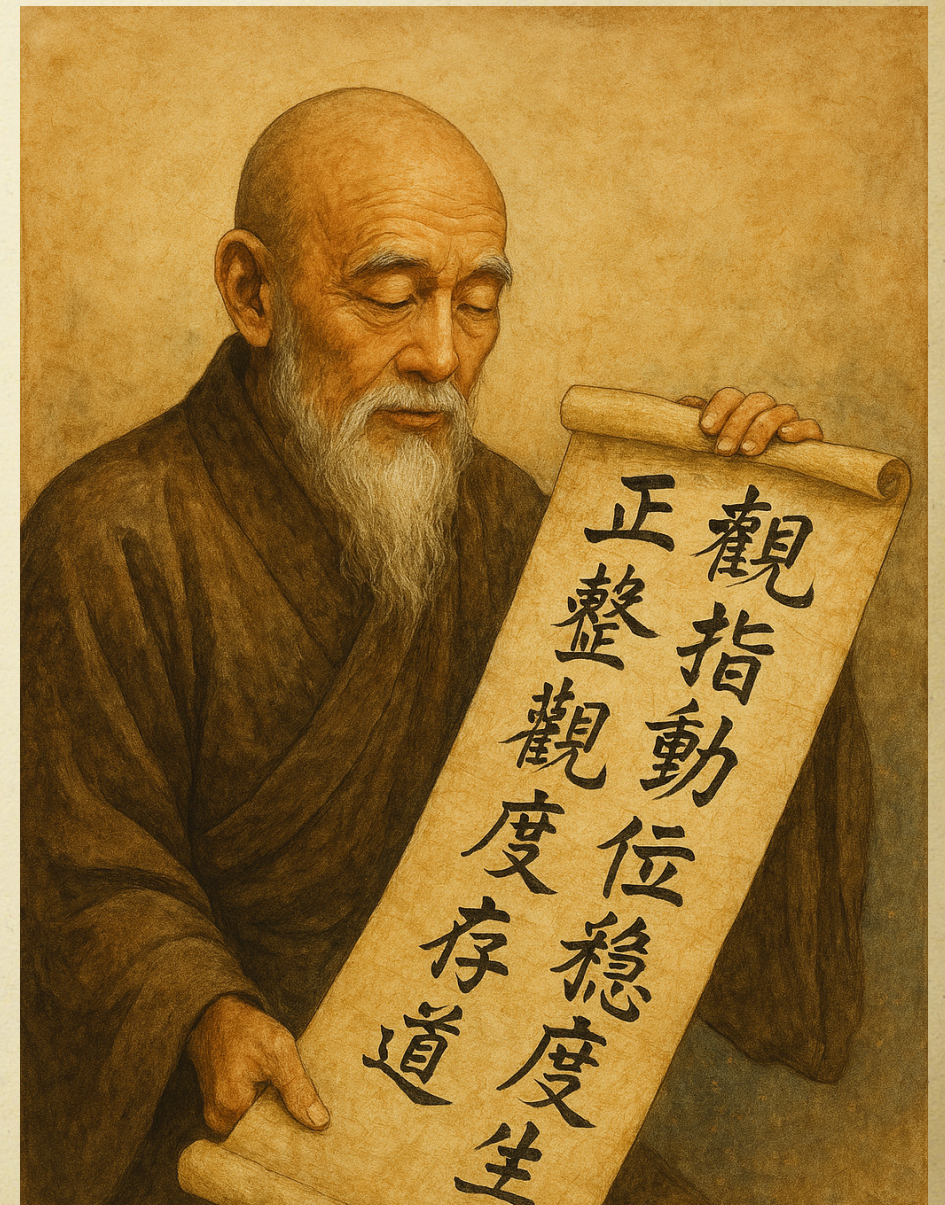 觀指動位穩度生
正整觀度存道